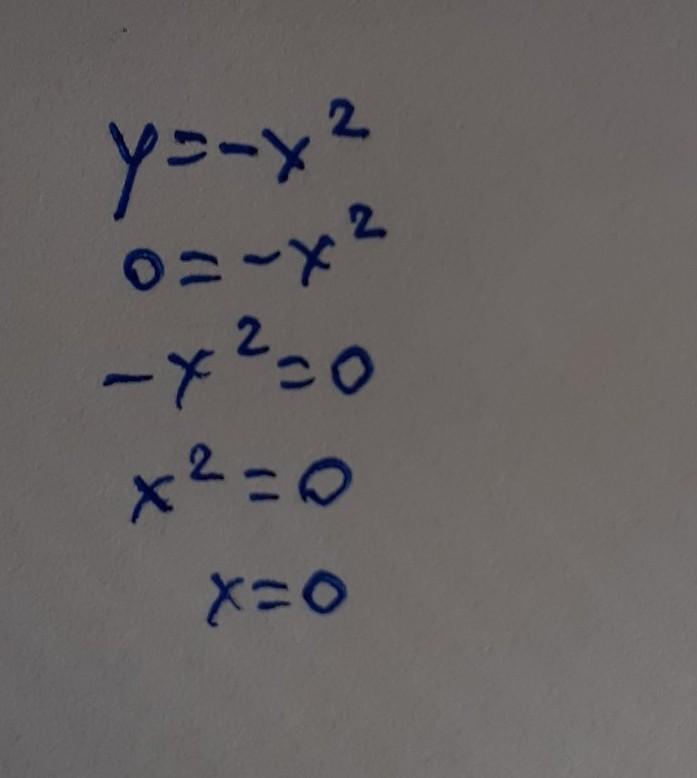 y=-x²
0=-x²
-x²=0
x²=0
x=0